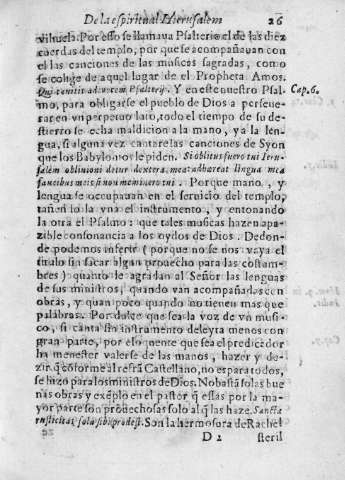 De la espiritual Hierusalem 26
vihuela. Por esso se llamaua Psalterio el de las diez
cuerdas del templo, por que se acompañauan con
el las canciones de las musicas sagradas, como
se colige de aquel lugar de el Propheta Amos.
Qui canitis ad vocem Psalterij. Y en este nuestro Psal- Cap. 6.
mo, para obligarse el pueblo de Dios a perseue-
rar en vn perpetuo luto, todo el tiempo de su de-
stierro se echa maldicion a la mano, y a la len-
gua, si alguna vez cantare las canciones de Syon
que los Babylonios le piden. Si oblitus fuero tui Ieru-
salem obliuioni detur dextera mea: adhæreat lingua mea
faucibus meis si non meminero tui. Porque mano, y
lengua se occupauan en el seruicio del templo,
tañendo la vna el instrumento, y entonando
la otra el Psalmo: que tales musicas hazen apa-
zible consonancia a los oydos de Dios. Dedon-
de podemos inferir (porque no se nos vaya el
titulo sin sacar algun prouecho para las costum-
bres) quanto le agradan al Señor las lenguas
de sus ministros, quando van acompañadas con
obras, y quan poco quando no tienen mas que
palabras. Por dulce que sea la voz de vn musi-
co, si canta sin instrumento deleyta menos con
gran parte, por el qual mente que sea el predicador
ha menester valerse de las manos, hazer y de-
zir, q̃ cõforme al refrã Castellano, no es para todos,
se hizo para los ministros de Dios. No bastã solas bue
nas obras y exẽplo en el pastor q̃ estas por la ma-
yor parte son prouechosas solo al q̃ las haze. Sancta
rusticitas sola sibi prodest. Son la hermosura de Rachel
D 2 steril